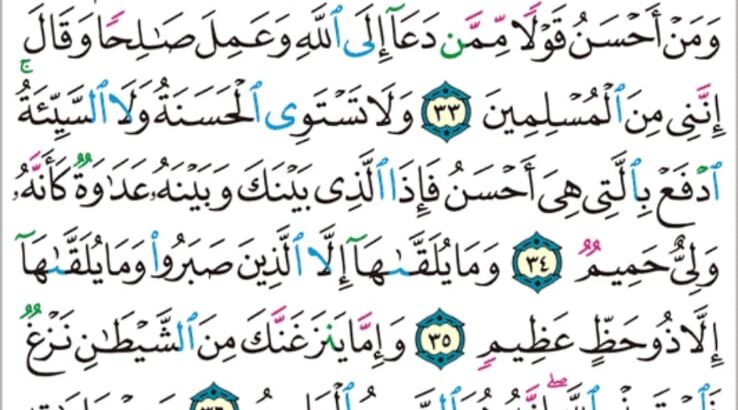 وَمَنْ أَحْسَنُ قَوْلًا مِّمَّن دَعَآ إِلَى ٱللَّهِ وَعَمِلَ صَـٰلِحًا وَقَالَ
إِنَّنِى مِنَ ٱلْمُسْلِمِينَ ٣٣ وَلَا تَسْتَوِى ٱلْحَسَنَةُ وَلَا ٱلسَّيِّئَةُ ۚ
ٱدْفَعْ بِٱلَّتِى هِىَ أَحْسَنُ فَإِذَا ٱلَّذِى بَيْنَكَ وَبَيْنَهُۥ عَدَٰوَةٌ كَأَنَّهُۥ
وَلِىٌّ حَمِيمٌ ٣٤ وَمَا يُلَقَّىٰهَآ إِلَّا ٱلَّذِينَ صَبَرُوا۟ وَمَا يُلَقَّىٰهَآ
إِلَّا ذُو حَظٍّ عَظِيمٍ ٣٥ وَإِمَّا يَنزَغَنَّكَ مِنَ ٱلشَّيْطَـٰنِ نَزْغٌ